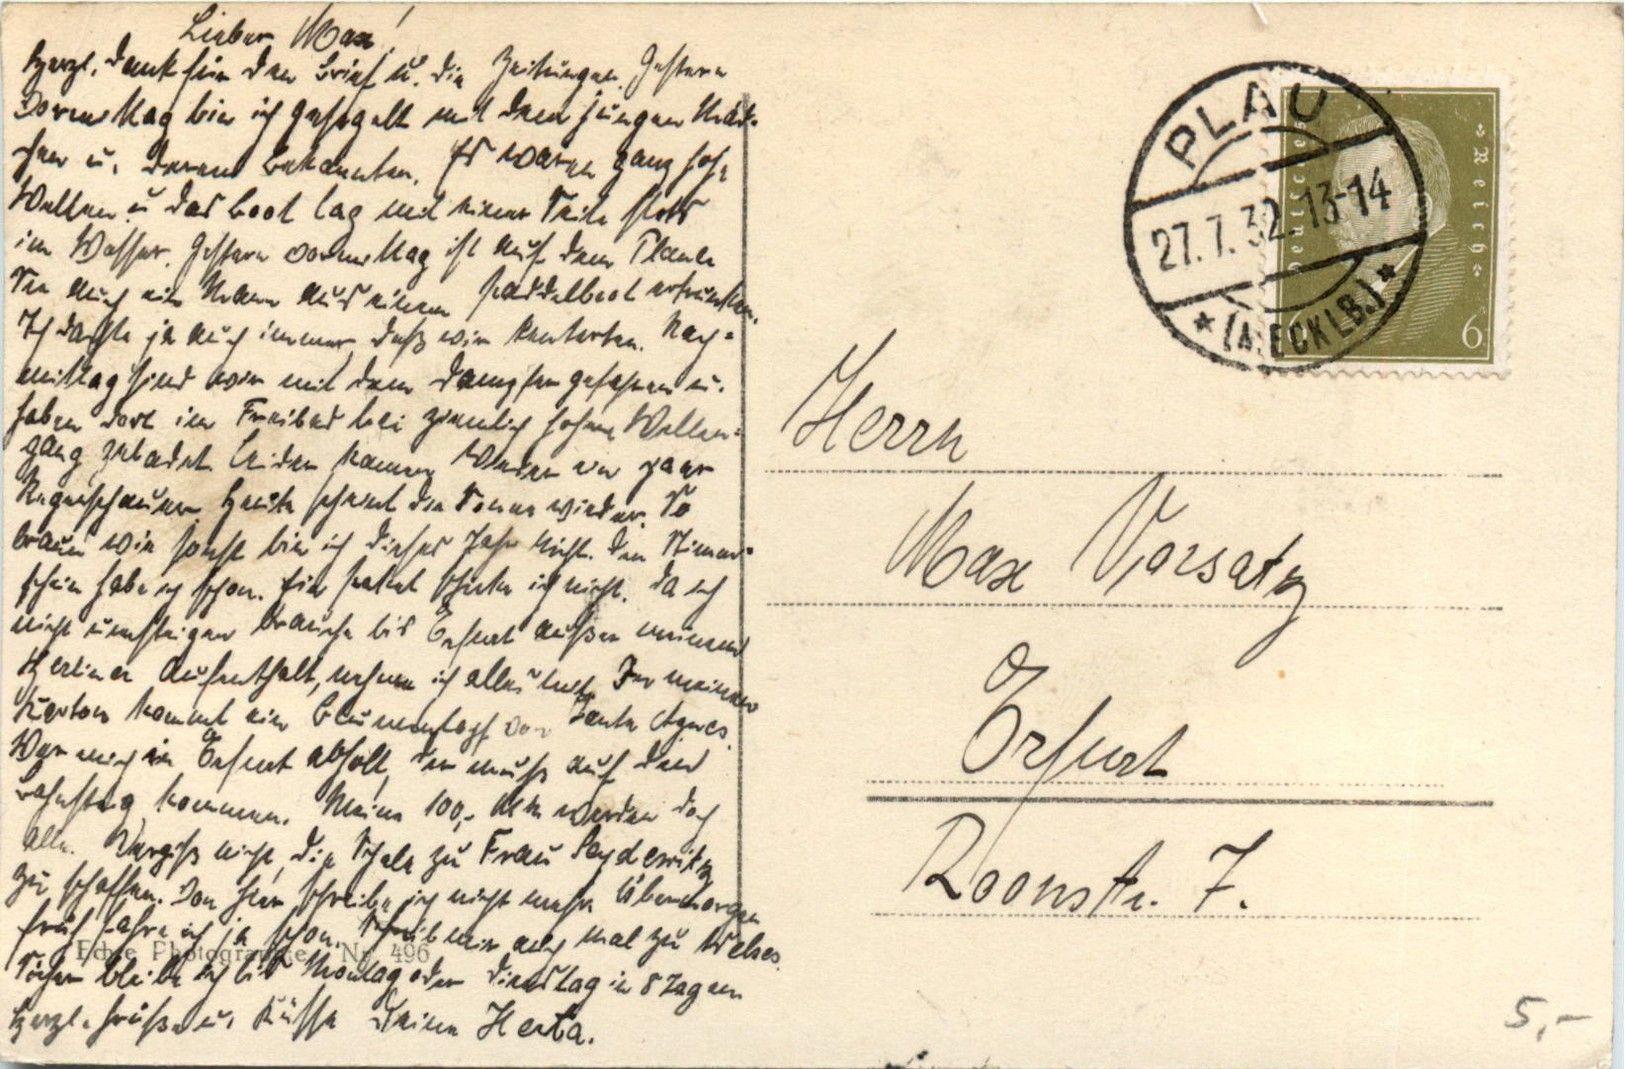 Lieber Max!
Herzl. Dank für den Brief u. die Zeitungen. Gestern
Vormittag bin ich gesegelt mit dem jungen Mäd-
chen u. deren Bekannten. Es waren ganz hohe
Wellen u das Boot lag mit einer Seite stets
im Wasser. Gestern vormittag ist auf dem Plauer
See auch ein Mann aus einem Paddelboot ertrunken.
Ich dachte ja auch immer, daß wir kenterten. Nach-
mittag sind wir mit dem Dampfer gefahren u.
haben dort im Freibad bei ziemlich hohem Wellen-
gang gebadet. Leider kamen wieder ein paar
Regenschauer. Heute scheint die Sonne wieder. So
braun wie sonst bin ich dieses Jahr nicht. Den
schein habe ich schon. Ein Paket schicke ich nicht. Da ich
nicht umsteigen brauche bis Erfurt außer meinem
Berliner Aufenthalt, nehme ich alles mit. In meinen
Karton kommt ein Blumentopf von Tante Agnes.
Wer mich in Erfurt abholt, der muß auf den
Bahnsteig kommen. Meine 100,- Mk werden doch
alle. Vergiß nicht, die Schale zu Frau Seydewitz
zu schaffen. Von hier schreibe ich nicht mehr. Übermorgen
früh fahre ich ja schon. Schreib mir auch mal zu
bleibe ich bis Montag oder Dienstag in 8 Tagen
Herzl. Grüße u. Küsse Deine Herta.
Echte Photographie Nr 496
PLAU
27.7.32.13-14
* (MECKLB.) *
Deutsches
Reich
6
Herrn
Max Vorsatz
Erfurt
Roonstr. 7.
5,-